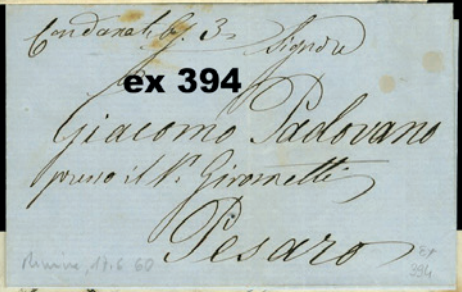 3 Signore
ex 394
Giacomo Padovano
presso il Sr. Girometti
Pesaro
Rimini, 17.6 60
ex
394